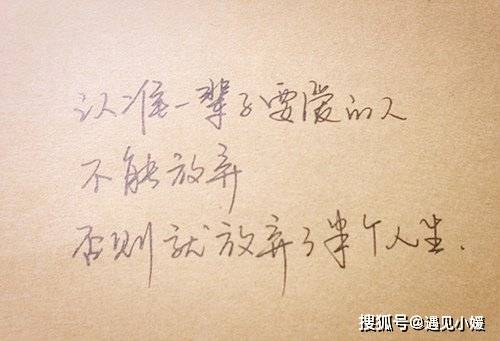 认准一辈子要爱的人
不能放弃
否则就放弃了半个人生.
搜狐号@遇见小媛